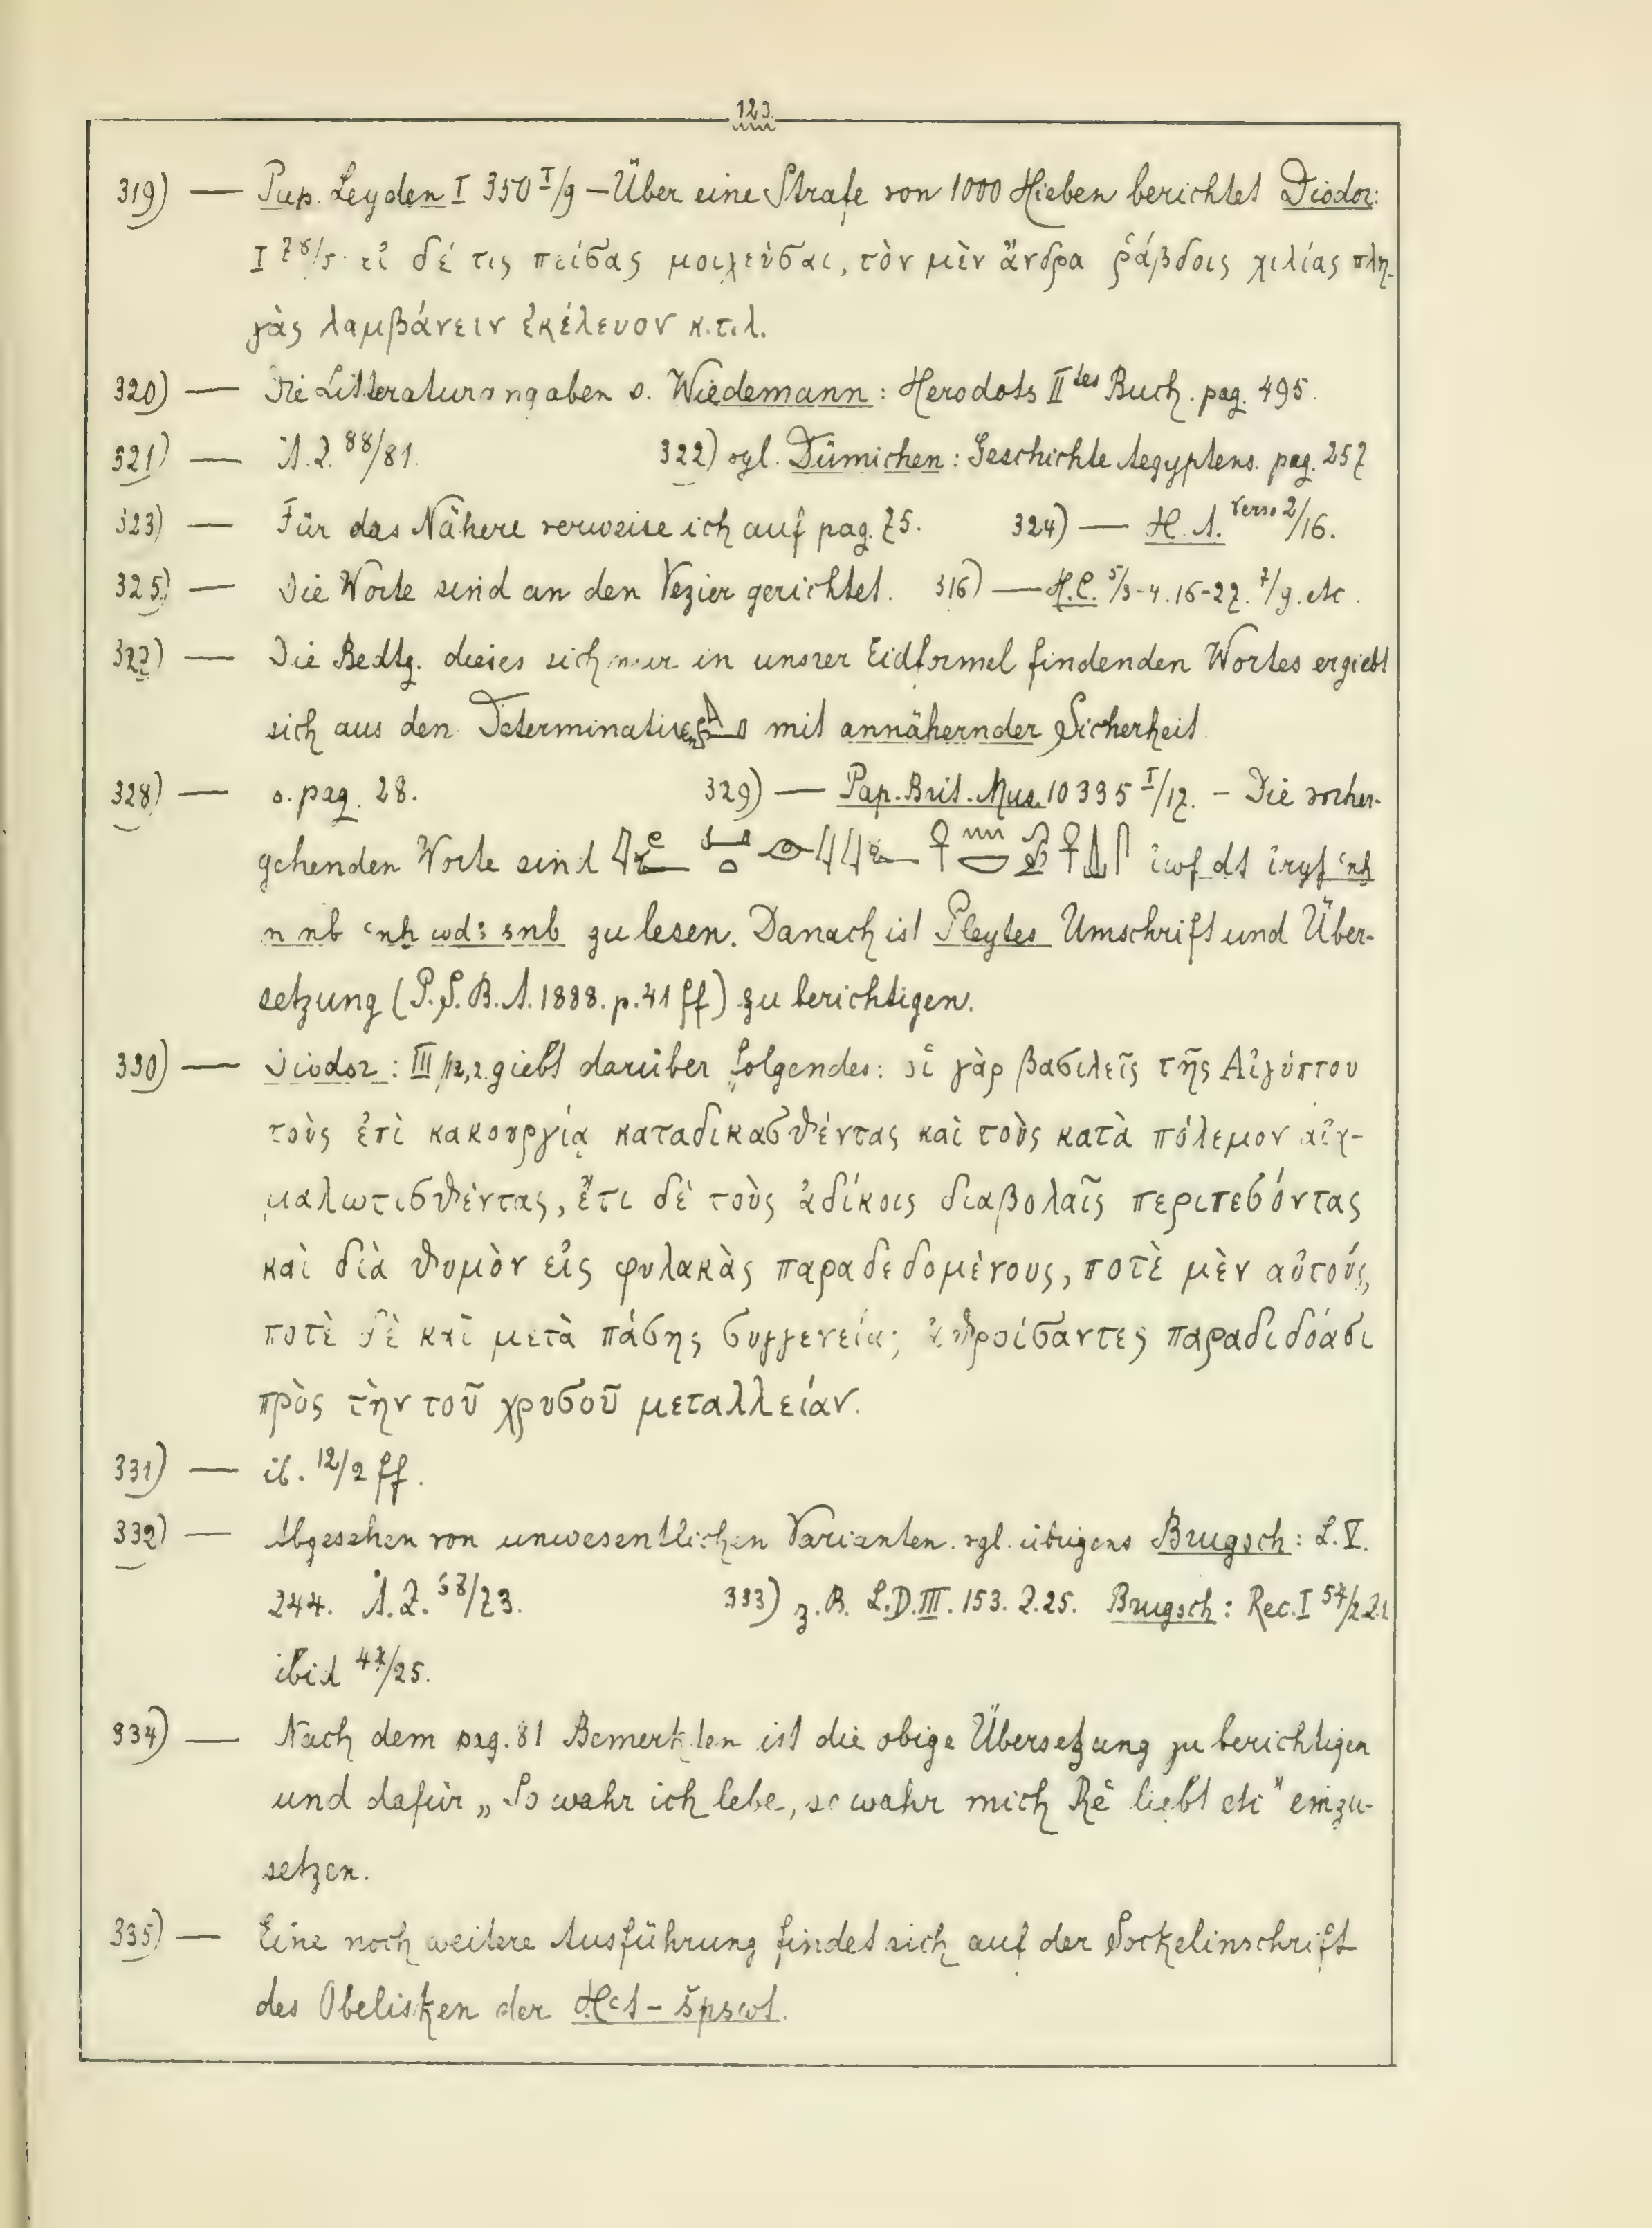 123.
319) — Pap. Leyden I 350 I/9 – Über eine Strafe von 1000 Hieben berichtet Diodor:
I 78/5. εἰ δέ τις πείσας μοιχεύσαι, τὸν μὲν ἄνδρα ῥάβδοις χιλίας πλη-
γὰς λαμβάνειν ἐκέλευον κ.τ.λ.
320) — Die Litteraturangaben s. Wiedemann: Herodots II tes Buch. pag. 495.
321) — Ä.Z. 88/81. 322) vgl. Dümichen: Geschichte Aegyptens. pag. 257
323) — Für das Nähere verweise ich auf pag. 75. 324) — H.A. Verso 2/16.
325) — Die Worte sind an den Vezier gerichtet. 316) — H.C. 5/3-4. 16-27. 7/9. etc.
327) — Die Bedtg. dieses sich nur in unsrer Eidformel findenden Wortes ergiebt
sich aus den Determinativen mit annähernder Sicherheit.
328) — s. pag. 28. 329) — Pap. Brit. Mus. 10335 I/17. – Die vorher-
gehenden Worte sind ỉwf dt ỉryf ʿnḫ
n nb ʿnḫ wdꜣ snb zu lesen. Danach ist Pleytes Umschrift und Über-
setzung (P.S.B.A. 1888. p. 41 ff) zu berichtigen.
330) — Diodor: III/12,2. giebt darüber folgendes: οἱ γὰρ βασιλεῖς τῆς Αἰγύπτου
τοὺς ἐπὶ κακουργίᾳ καταδικασθέντας καὶ τοὺς κατὰ πόλεμον αἰχ-
μαλωτισθέντας, ἔτι δὲ τοὺς ἀδίκοις διαβολαῖς περιπεσόντας
καὶ διὰ θυμὸν εἰς φυλακὰς παραδεδομένους, ποτὲ μὲν αὐτούς,
ποτὲ δὲ καὶ μετὰ πάσης συγγενείας ἀθροίσαντες παραδιδόασι
πρὸς τὴν τοῦ χρυσοῦ μεταλλείαν.
331) — ib. 12/2 ff.
332) — Abgesehen von unwesentlichen Varianten. vgl. übrigens Brugsch: L.V.
244. Ä.Z. /73. 333) z.B. L.D. III. 153. Z. 25. Brugsch: Rec. I 54/2 Z.1
ibid /25.
334) — Nach dem pag. 81 Bemerkten ist die obige Übersetzung zu berichtigen
und dafür „So wahr ich lebe, so wahr mich Rê liebt etc" einzu-
setzen.
335) — Eine noch weitere Ausführung findet sich auf der Sockelinschrift
des Obelisken der Hct – špswt.